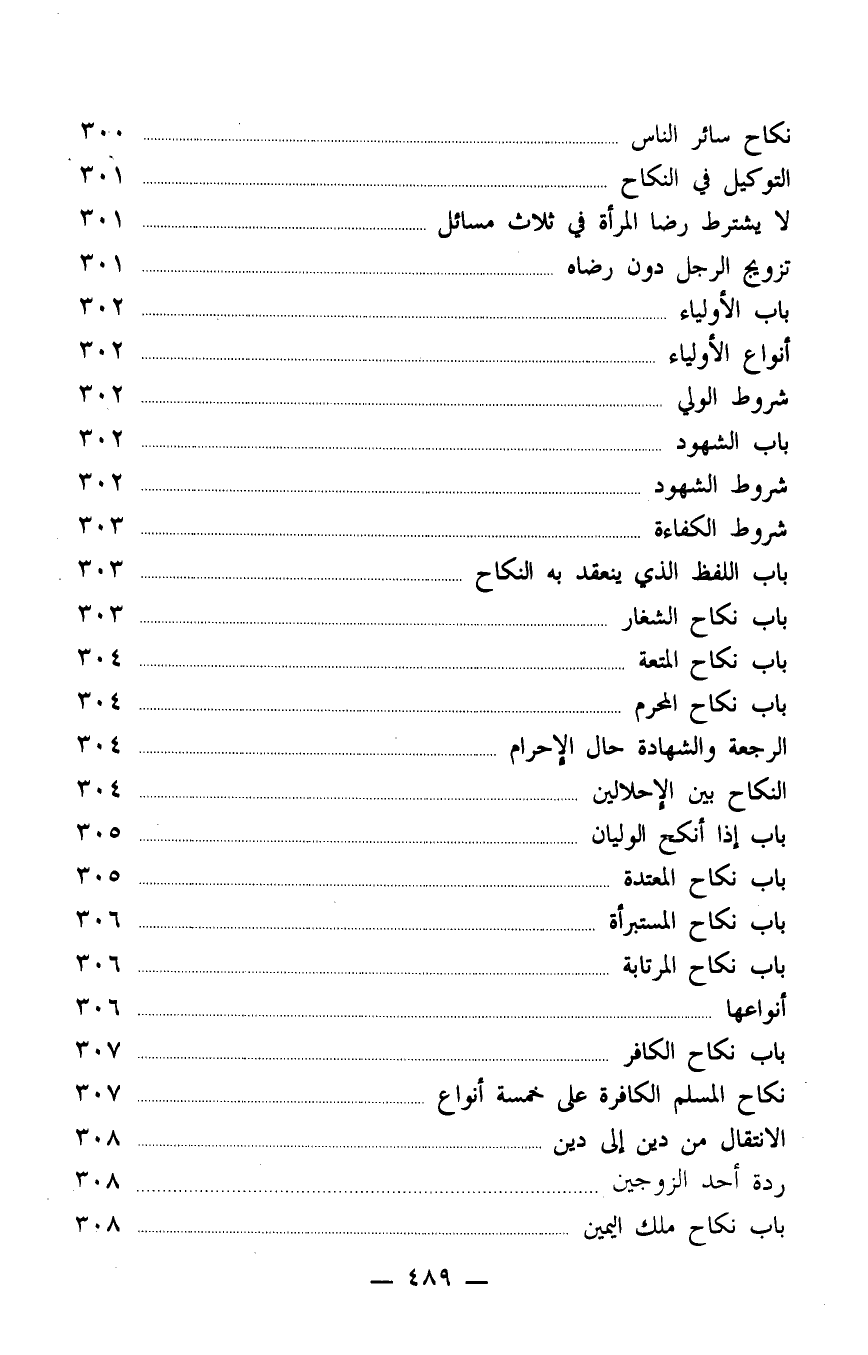 نكاح سائر الناس ........ ٣٠٠
التوكيل في النكاح ........ ٣٠١
لا يشترط رضا المرأة في ثلاث مسائل ........ ٣٠١
تزويج الرجل دون رضاه ........ ٣٠١
باب الأولياء ........ ٣٠٢
أنواع الأولياء ........ ٣٠٢
شروط الولي ........ ٣٠٢
باب الشهود ........ ٣٠٢
شروط الشهود ........ ٣٠٢
شروط الكفاءة ........ ٣٠٣
باب اللفظ الذي ينعقد به النكاح ........ ٣٠٣
باب نكاح الشغار ........ ٣٠٣
باب نكاح المتعة ........ ٣٠٤
باب نكاح المحرم ........ ٣٠٤
الرجعة والشهادة حال الإحرام ........ ٣٠٤
النكاح بين الإحلالين ........ ٣٠٤
باب إذا أنكح الوليان ........ ٣٠٥
باب نكاح المعتدة ........ ٣٠٥
باب نكاح المستبرأة ........ ٣٠٦
باب نكاح المرتابة ........ ٣٠٦
أنواعها ........ ٣٠٦
باب نكاح الكافر ........ ٣٠٧
نكاح المسلم الكافرة على خمسة أنواع ........ ٣٠٧
الانتقال من دين إلى دين ........ ٣٠٨
ردة أحد الزوجين ........ ٣٠٨
باب نكاح ملك اليمين ........ ٣٠٨
— ٤٨٩ —